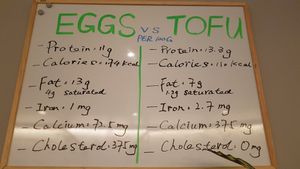 EGGS VS TOFU
PER 100G
— Protein: 11g
— Calories: 174 kcal
— Fat: 13g
4g saturated
— Iron: 1 mg
— Calcium: 72.5 mg
— Cholesterol: 375 mg
— Protein: 13.3g
— Calories: 110 kcal
— Fat: 7g
1.2g saturated
— Iron: 2.7 mg
— Calcium: 375 mg
— Cholesterol: 0 mg